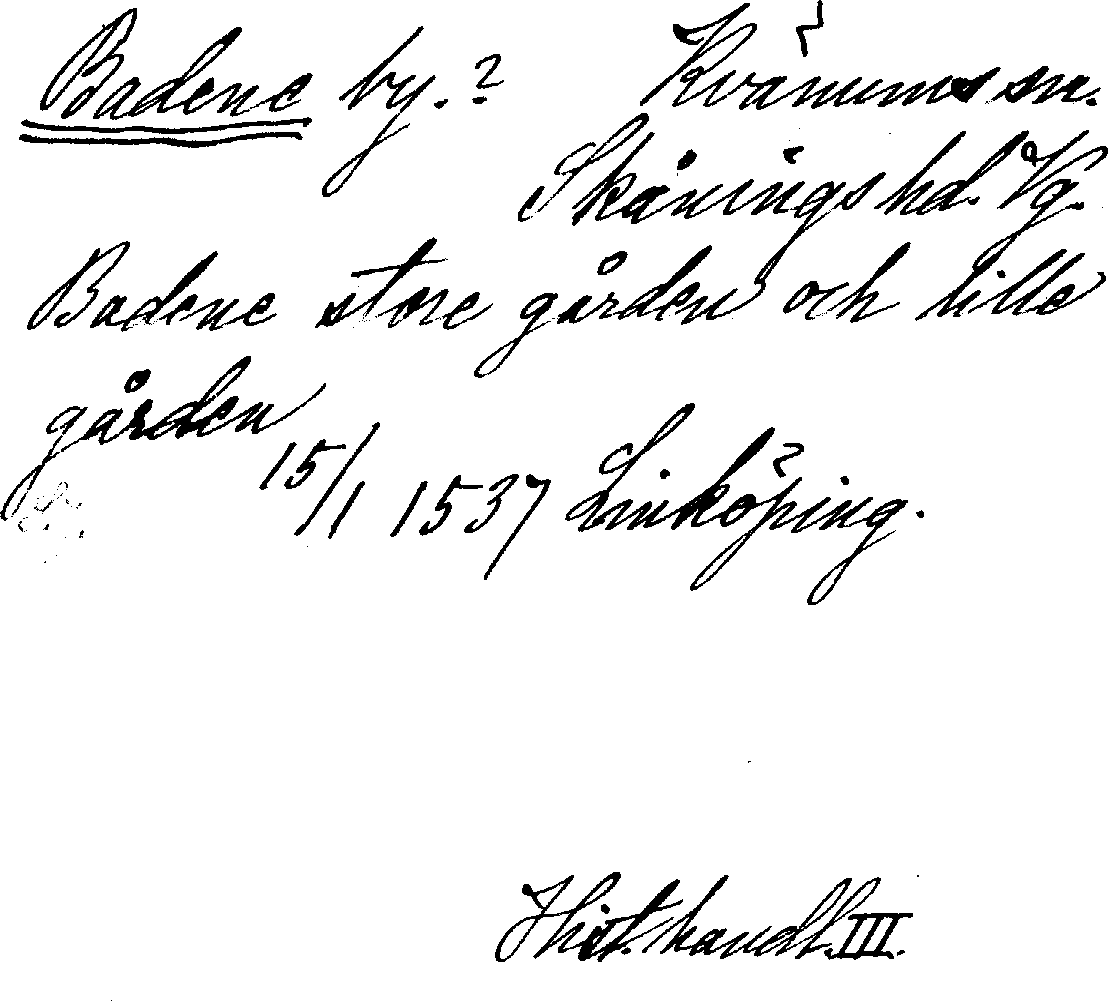 Badene by.? Kvänums sn.
Skånings hd. Vg.
Badene store gården och lille
gården
15/1 1537 Linköping.
Hist. handl. III.